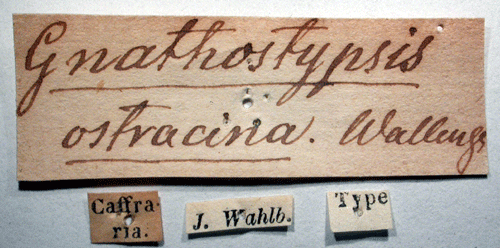 Gnathostypsis
ostracina. Wallengr
Caffra-
ria.
J. Wahlb.
Type